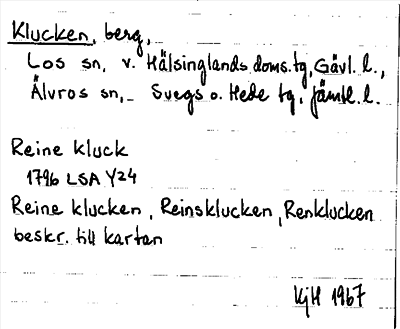 Klucken, berg,
Los sn, v. Hälsinglands doms.tg, Gävl. l.,
Älvros sn, - Svegs o. Hede tg, Jämtl. l.
Reine kluck
1796 LSA Y24
Reine klucken, Reinsklucken, Renklucken
beskr. till kartan
KjH 1967